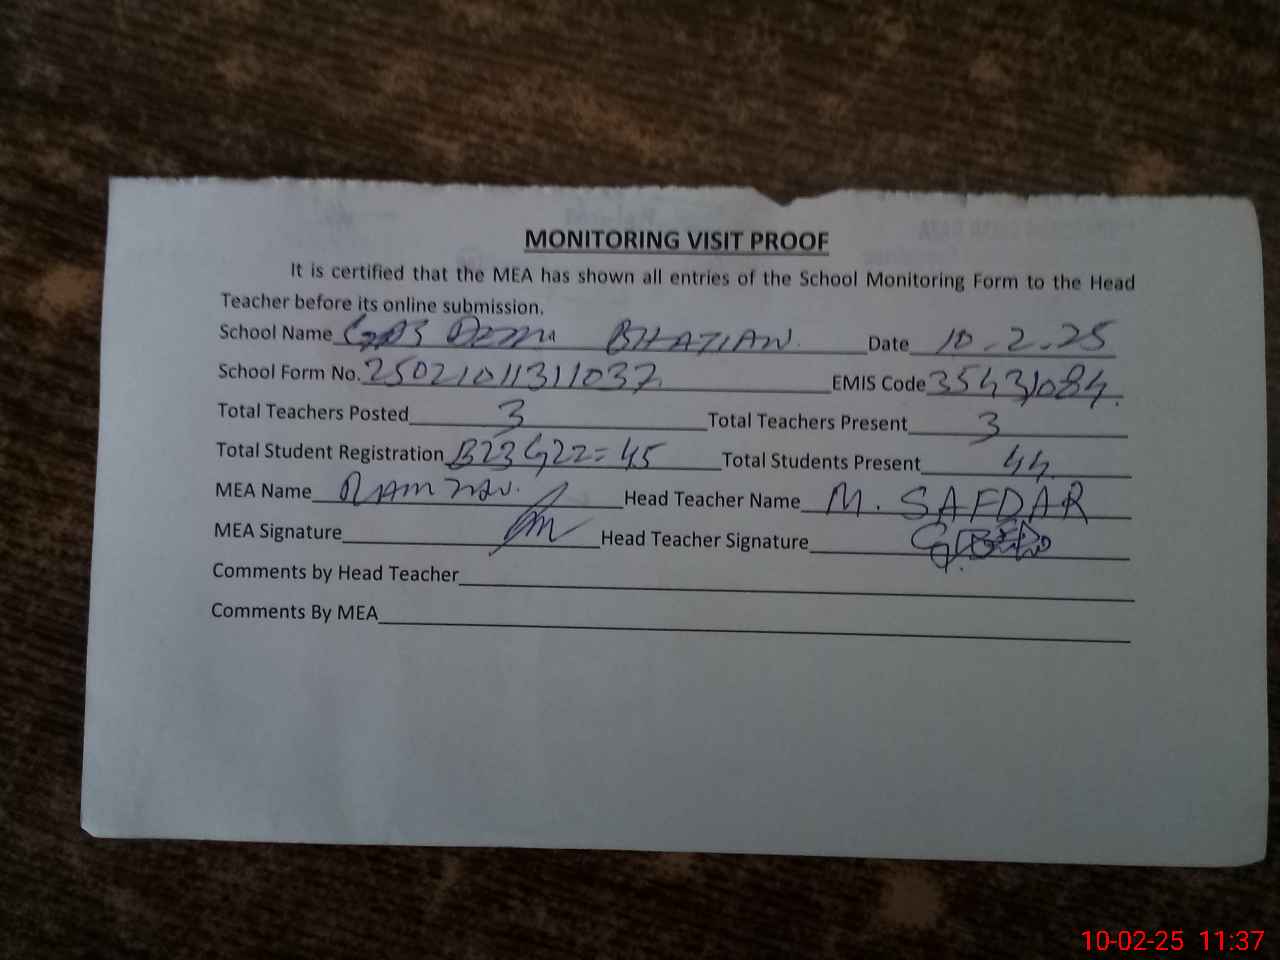 MONITORING VISIT PROOF
It is certified that the MEA has shown all entries of the School Monitoring Form to the Head
Teacher before its online submission.
School Name GPS BHATIAN. Date 10.2.25
School Form No. 25021011311037 EMIS Code 35431084.
Total Teachers Posted 3 Total Teachers Present 3
Total Student Registration B23 G22=45 Total Students Present 44
MEA Name Head Teacher Name M. SAFDAR
MEA Signature Head Teacher Signature
Comments by Head Teacher
Comments By MEA
10-02-25 11:37